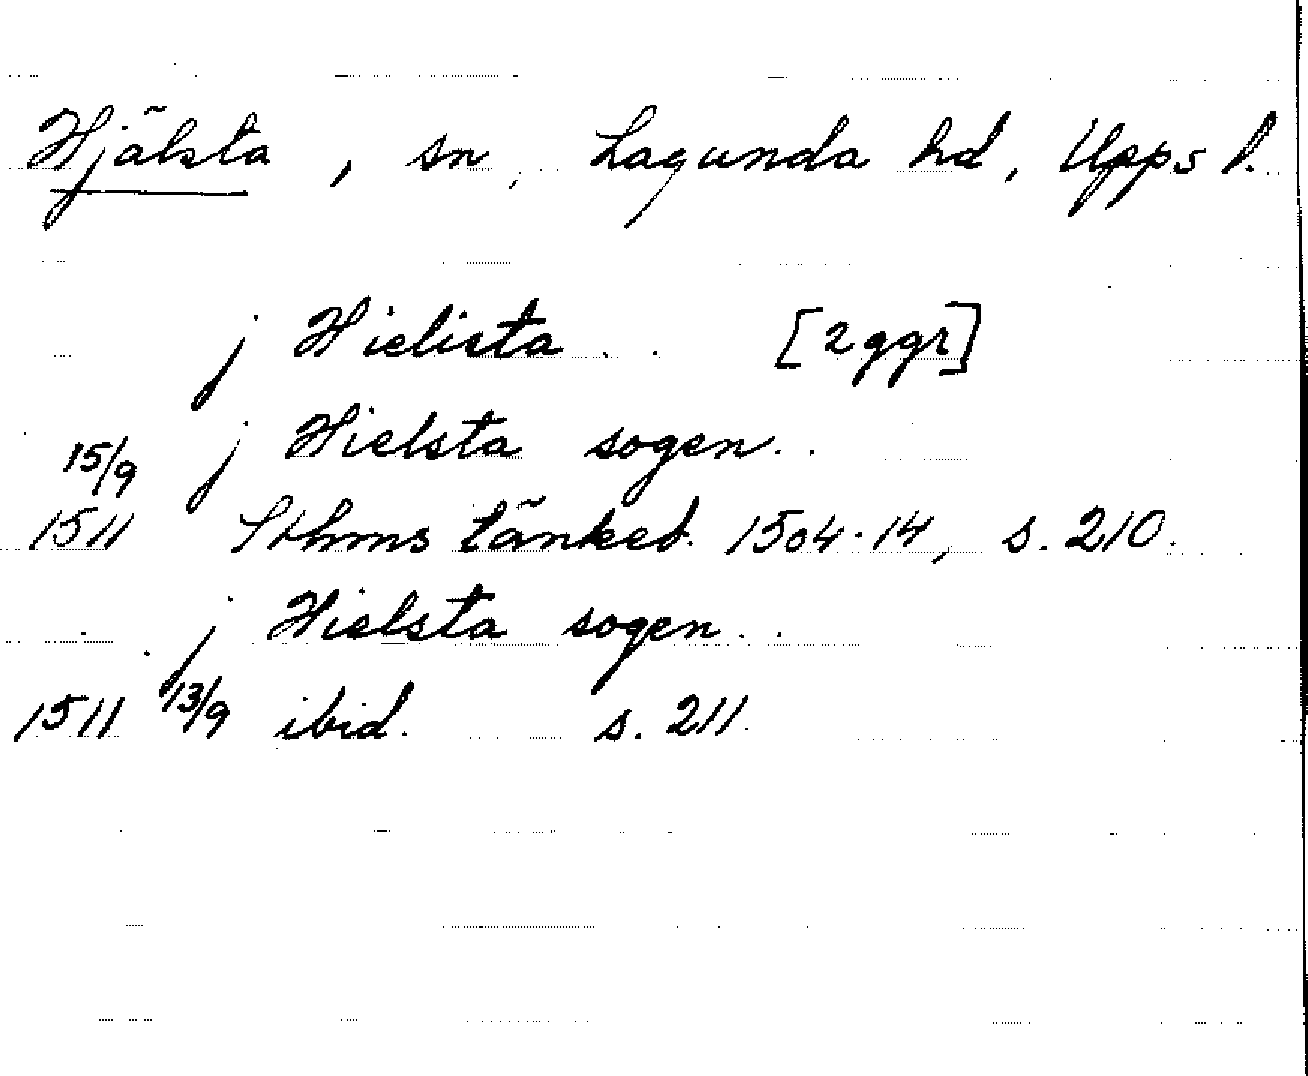 Hjälsta, sn, Lagunda hd, Upps l.
j Hielista [2 ggr]
15/9 j Hielsta sogen
1511 Sthms tänkeb. 1504-14, s. 210.
j Hielsta sogen
1511 13/9 ibid. s. 211.